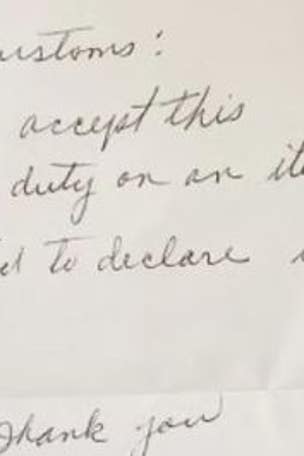 ustoms:
accept this
duty on an it
ed to declare
Thank you